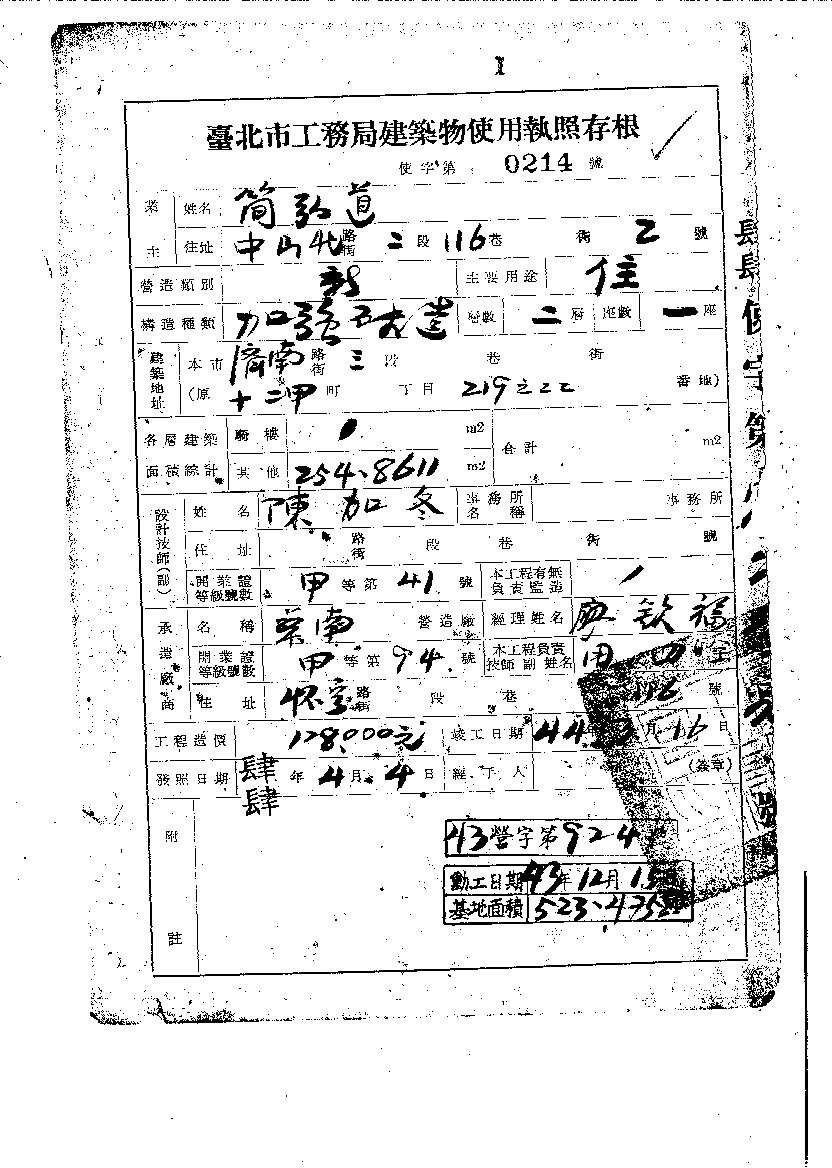 臺北市工務局建築物使用執照存根
使字第 0214 號
業主 姓名 簡弘道
住址 中山北路街 二段 116巷 街 2 號
營造類別 新 主要用途 住
構造種類 加強瓦造 層數 二層 座數 一座
建築地址 本市 濟南路街 三段 巷 街
(原 十二甲町 丁目 219之22 番地)
各層建築面積綜計 騎樓 m2 合計 m2
其他 254.8611 m2
設計技師(副) 姓名 陳加冬 事務所名稱 事務所
住址 路街 段 巷 街 號
開業證等級號數 甲等第 41 號 本工程有無負責監造
承造廠商 名稱 南 營造廠 經理姓名 廖欽福
開業證等級號數 甲等第 94 號 本工程負責技師副姓名
住址 懷寧路街 段 巷 116 號
工程造價 128,000元 竣工日期 44年3月16日
發照日期 肆肆年4月4日 經丁人 (簽章)
附註
43營字第924
動工日期 43年12月15日
基地面積 523.475
肆肆使字第